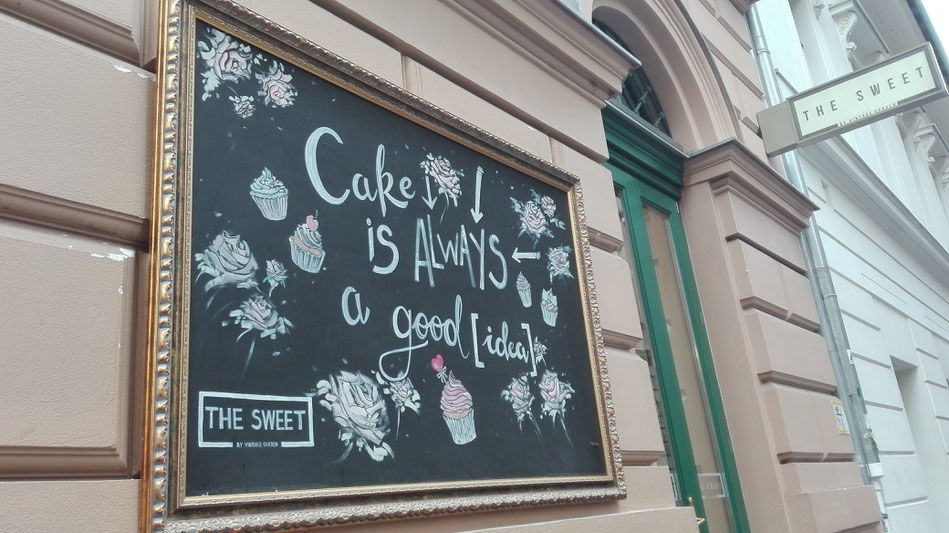 Cake
is ALWAYS
a good [idea]
THE SWEET
BY VINTAGE GARDEN
THE SWEET
BY VINTAGE GARDEN